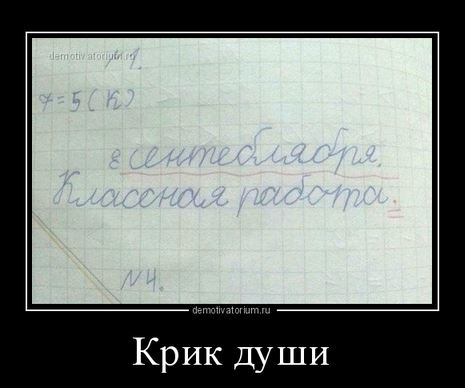 demotivatorium.ru
№1.
7=5(К)
8 сентеблября.
Классная работа.
№4.
demotivatorium.ru
Крик души